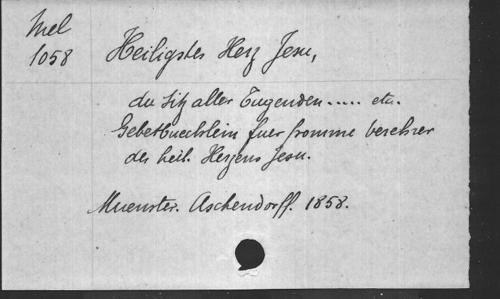 Mel
1058
Heiligstes Herz Jesu,
du Sitz aller Tugenden ..... etc.
Gebetbuechlein fuer fromme verehrer
des heil. Herzens Jesu.
Muenster. Aschendorff. 1858.